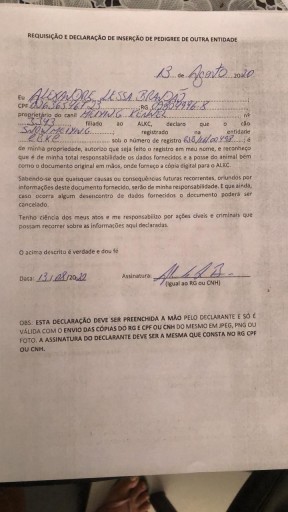 REQUISIÇÃO E DECLARAÇÃO DE INSERÇÃO DE PEDIGREE DE OUTRA ENTIDADE
13 de Agosto 2020
Eu ALEXANDRE LESSA BRANDÃO
CPF RG
proprietário do canil KENNEL nº
3343 filiado ao ALKC, declaro que o cão
registrado na entidade
sob o número de registro e
de minha propriedade, autorizo que seja feito o registro em meu nome, e reconheço
que é de minha total responsabilidade os dados fornecidos e a posse do animal bem
como o documento original em mãos, onde forneço a cópia digital para o ALKC.
Sabendo-se que quaisquer causas ou consequências futuras recorrentes, oriundos por
informações deste documento fornecido, serão de minha responsabilidade. E que ainda,
caso ocorra algum desencontro de dados fornecidos o documento poderá ser
cancelado.
Tenho ciência dos meus atos e me responsabilizo por ações cíveis e criminais que
possam recorrer sobre as informações aqui declaradas.
O acima descrito é verdade e dou fé
Data: 13/08/2020 Assinatura:
(igual ao RG ou CNH)
OBS: ESTA DECLARAÇÃO DEVE SER PREENCHIDA A MÃO PELO DECLARANTE E SÓ É
VÁLIDA COM O ENVIO DAS CÓPIAS DO RG E CPF OU CNH DO MESMO EM JPEG, PNG OU
FOTO. A ASSINATURA DO DECLARANTE DEVE SER A MESMA QUE CONSTA NO RG CPF
OU CNH.